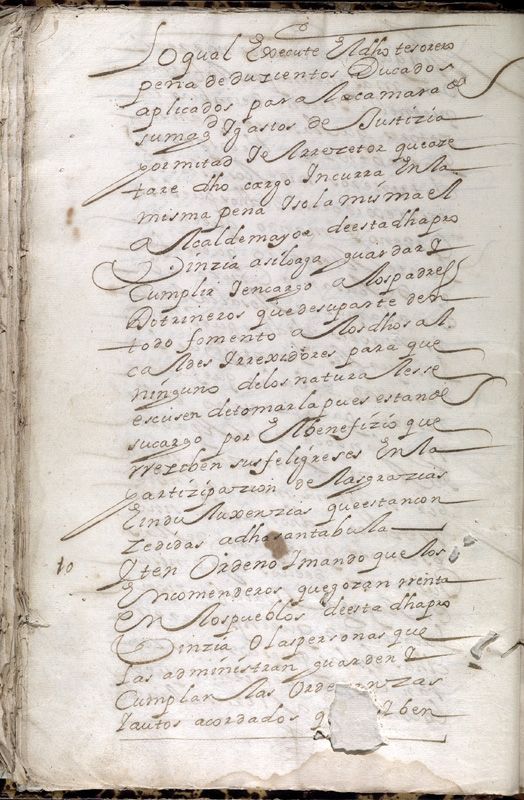 Lo qual Execute El dho tesorero
pena de duzientos Ducados
aplicados para la camara de
su magd I gastos de Justizia
por mitad I el Arrezetor que aze
tare dho cargo Incurra En la
misma pena I so la misma el
Alcalde mayor de esta dha pro
binzia asi lo aga guardar I
Cumplir I encargo a los padres
Dotrineros que de su parte den
todo fomento a los dhos al
caldes I rrexidores para que
ninguno de los naturales se
escusen de tomar la pues esta de
su cargo por El benefizio que
rreziben sus feligreses En la
partizipazion de las grazias
E indulxenzias que estan con
zedidas a dha santa bula
10 Iten Ordeno I mando que los
Encomenderos que gozan rrenta
En los pueblos de esta dha pro
binzia O las personas que
las administran guarden I
Cumplan las Ordenanzas
I autos acordados